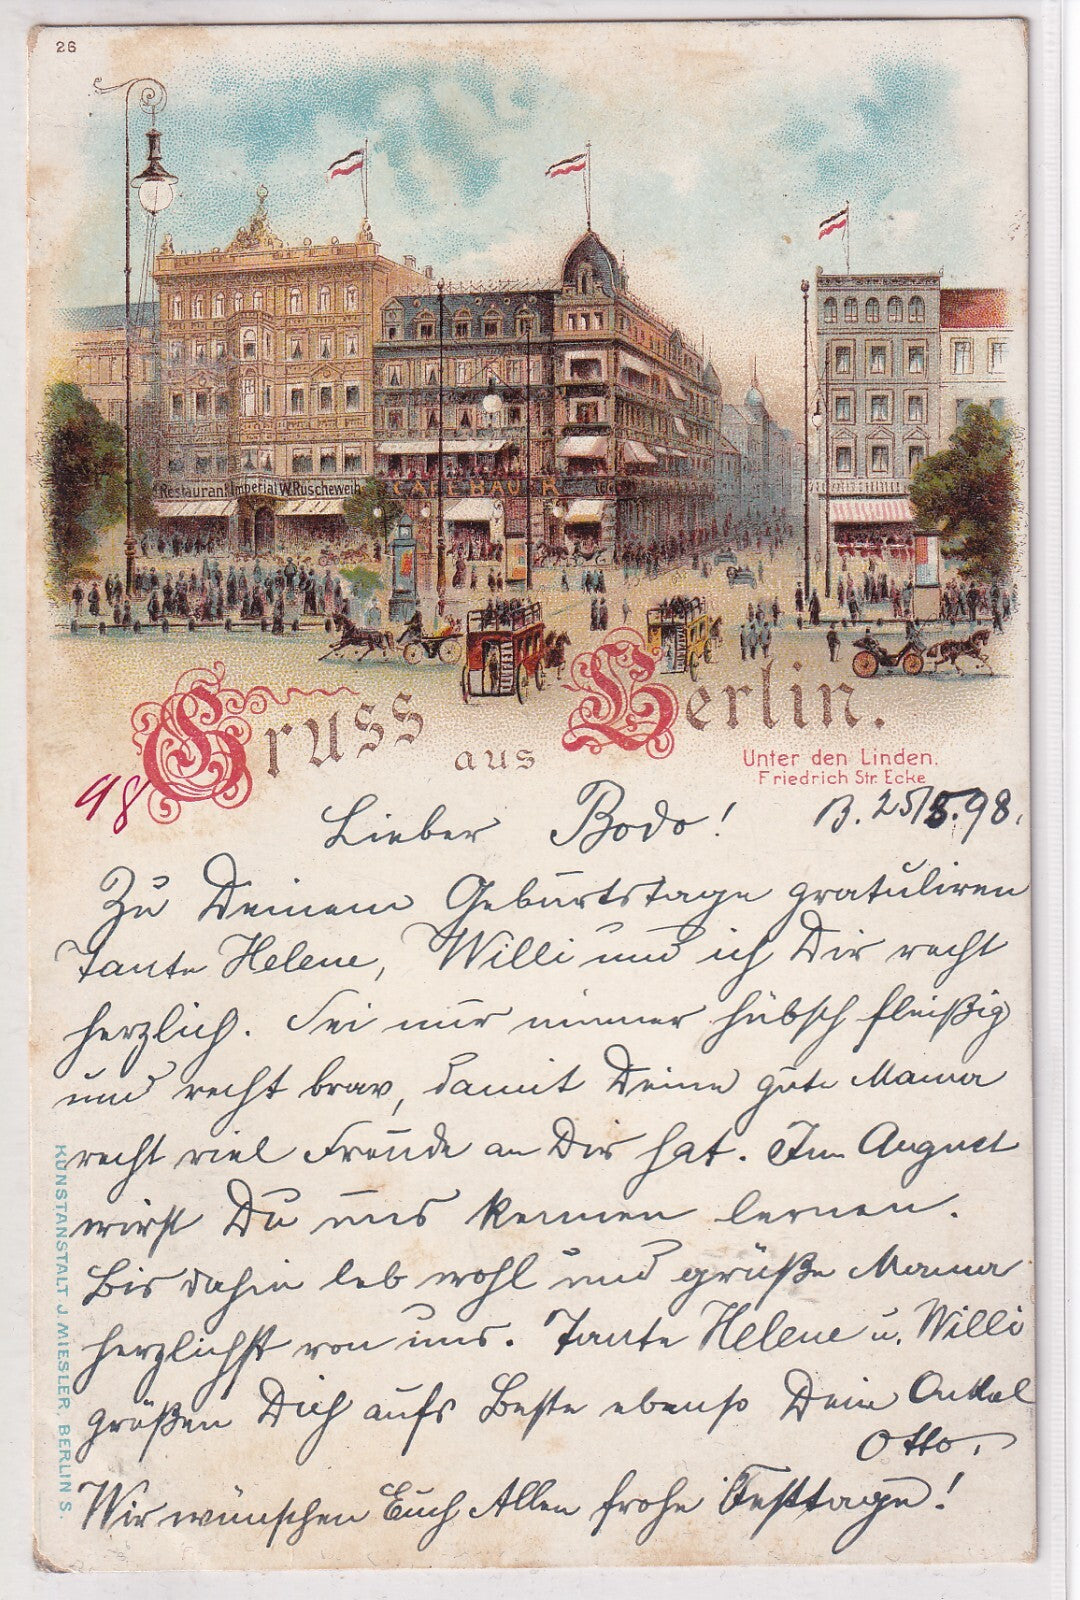 26
Restaurant Imperial W. Ruscheweih
CAFE BAUER
Gruss aus Berlin.
Unter den Linden.
Friedrich Str. Ecke
98
Lieber Bodo! B. 25/5.98.
Zu Deinem Geburtstage gratuliren
Tante Helene, Willi und ich Dir recht
herzlich. Sei nur immer hübsch fleißig
und recht brav, damit Deine gute Mama
recht viel Freude an Dir hat. Im August
wirst Du uns kennen lernen.
Bis dahin leb wohl und grüße Mama
herzlichst von uns. Tante Helene u. Willi
grüßen Dich aufs Beste ebenso Dein Onkel
Otto.
Wir wünschen Euch Allen frohe Festtage!
KUNSTANSTALT J. MIESLER, BERLIN S.